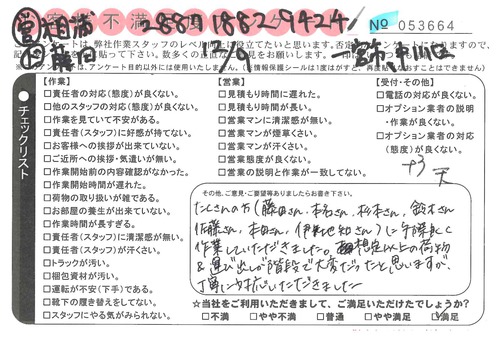 営 相浦 2887188294241 № 053664
作 藤田 12/9 一宮市 木川区
チェックリスト
【作業】
□責任者の対応(態度)が良くない。
□他のスタッフの対応(態度)が良くない。
□作業を見ていて不安がある。
□責任者(スタッフ)に好感が持てない。
□お客様への挨拶が出来ていない。
□ご近所への挨拶・気遣いが無い。
□作業開始前の内容確認がなかった。
□作業開始時間が遅れた。
□荷物の取り扱いが雑である。
□お部屋の養生が出来ていない。
□作業時間が長すぎる。
□責任者(スタッフ)に清潔感が無い。
□責任者(スタッフ)が汗くさい。
□トラックが汚い。
□梱包資材が汚い。
□運転が不安(下手)である。
□靴下の履き替えをしてない。
□スタッフにやる気がみられない。
【営業】
□見積もり時間に遅れた。
□見積もり時間が長い。
□営業マンに清潔感が無い。
□営業マンが煙草くさい。
□営業マンが汗くさい。
□営業態度が良くない。
□営業の説明と作業が一致してない。
【受付・その他】
□電話の対応が良くない。
□オプション業者の説明
・作業が良くない。
□オプション業者の対応
(態度)が良くない。
その他、ご意見・ご要望等ありましたらお書き下さい。
たくさんの方(藤田さん、本名さん、杉本さん、鈴木さん
佐藤さん、本田さん、伊我地知さん)に手際よく
作業していただきました。想定以上の荷物
&運び出しが階段で大変だったと思いますが、
丁寧に対応いただきました
★当社をご利用いただきまして、ご満足いただけてしょうか?
□不満 □やや不満 □普通 □やや満足 ☑満足